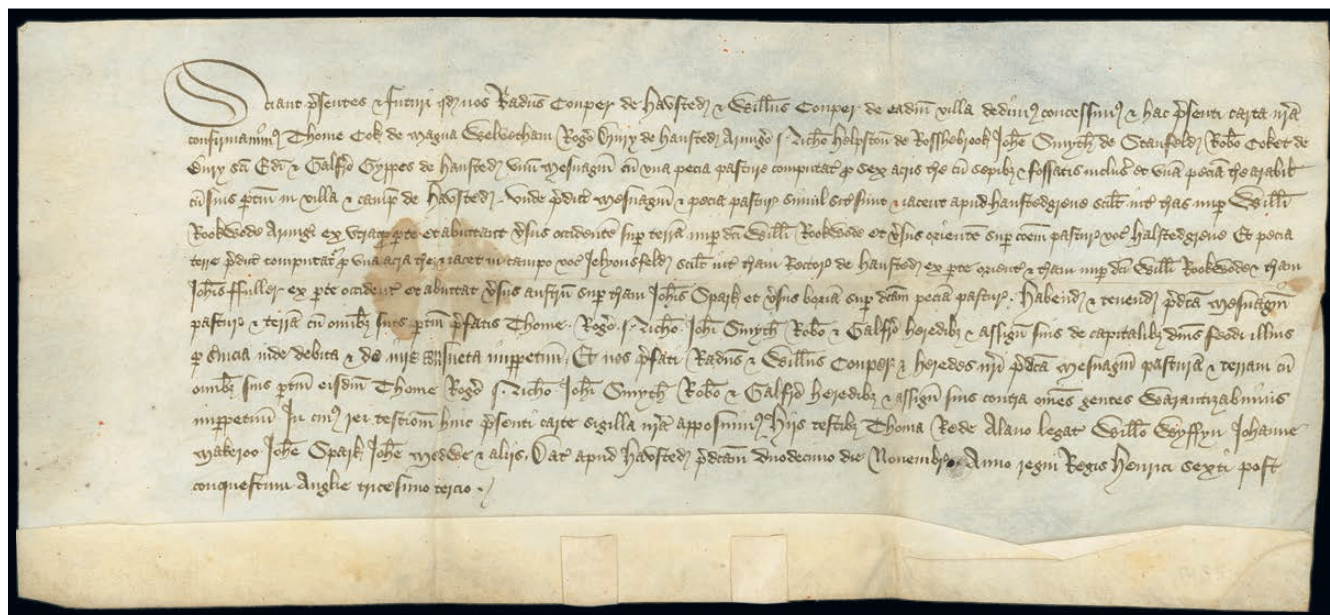 Sciant p̄sentes & futuri qd nos Radus Couper de Hausted & Willms Couper de eadm villa dedim⁹ concessim⁹ & hac p̄senti carta nr̄a
confirmauim⁹ Thome Cok de Magna Welwetham Rog̃o Drury de Hausted Armig̃o Ric̃o Helpston de Rosshebrook Joh̃i Smyth de Stanfeld Rob̃o Coket de
Bury sc̃i Edi & Galfr̃o Gyppes de Hausted vnū Mesuagiū cū vna pecia pasture computat p sex acris t̃re cū sepibȝ & fossatis inclus̃ et vnā peciā t̃re arabil
cū suis ptiñ in villa & camp̃ de Hausted . vnde p̄dict Mesuagiū & pecia pastur̃ simul sit sunt & iacent apud Haustedgrene scilt int̃ t̃ras nup Willi
Rookwode Armig̃i ex vtraqȝ pte et abuttant ṽsus occident̃ sup terrā nup dc̃i Willi Rookwode et ṽsus orientē sup cõem pastur̃ voc̃ Halstedgrene Et pecia
terre p̄dict computat̃ p vna acra t̃re & iacet in campo voc̃ scilt int̃ t̃ram Rector̃ de Hausted ex pte orient̃ & t̃ram nup dc̃i Willi Rookwode & t̃ram
Joh̃is ffuller ex pte occident̃ et abuttat ṽsus austrū sup t̃ram Joh̃is Spark et ṽsus boriā sup dc̃am peciā pastur̃ . Habend & tenend p̄dc̃a Mesuagiū
pastur̃ & terrā cū om̃ibȝ suis ptiñ p̄fatis Thome . Rog̃o . Ric̃o Joh̃i Smyth Rob̃o & Galfr̃o heredibȝ & assigñ suis de capitalibȝ dñis feodi illius
p s̃uicia inde debita & de iure consueta imppetuū . Et nos p̄fati Radus & Willms Couper & heredes nr̃i p̄dc̃a Mesuagiū pasturā & terram cū
om̃ibȝ suis ptiñ eisdm Thome Rog̃o Ric̃o Joh̃i Smyth Rob̃o & Galfr̃o heredibȝ & assigñ suis contra om̃es gentes Warantizabimus
imppetuū In cui⁹ rei testioñm huic p̄senti carte sigilla nr̃a apposuim⁹ Hiis testibȝ Thoma Rede Alano legat Willo Wyffyn Johanne
Makeroo Joh̃e Spark Joh̃e Medwe & aliis . Dat apud Hausted p̄dc̃am duodecimo die Nouembr̃ . Anno regni Regis Henrici sexti post
conquestum Anglie tricesimo tercio .